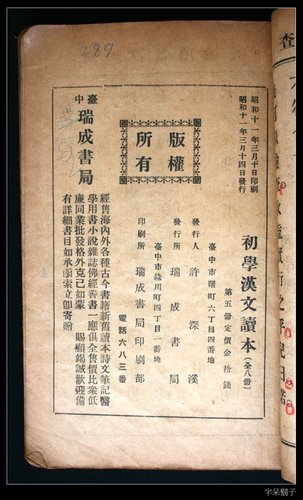 昭和十一年三月十日印刷
昭和十一年三月十四日發行
初學漢文讀本（全八冊）
第五冊定價金拾錢
臺中市曙町六丁目四番地
發行人 許深溪
發行所 瑞成書局
臺中市綠川町四丁目一番地
印刷所 瑞成書局印刷部
電話六八三番
版權所有
臺中瑞成書局
經售海內外各種古今書籍新舊讀本詩文筆記醫
學用書小說雜誌佛經善書一應俱全售價比衆低
廉同業批發格外克己如蒙 賜顧竭誠歡迎備
有詳細書目如承函索立即寄贈
289
查
半呆醫子